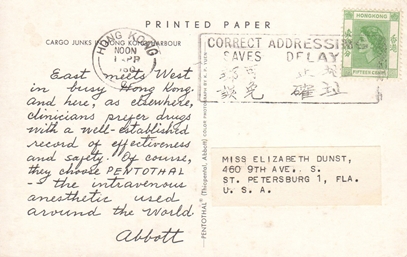 PRINTED PAPER
CARGO JUNKS IN HONG KONG HARBOUR
HONG KONG
NOON
CORRECT ADDRESSING
SAVES DELAY
HONGKONG
FIFTEEN CENTS
East meets West
in busy Hong Kong.
And here, as elsewhere,
clinicians prefer drugs
with a well-established
record of effectiveness
and safety. Of course,
they choose PENTOTHAL
– the intravenous
anesthetic used
around the world
Abbott
PENTOTHAL® (Thiopental, Abbott)
MISS ELIZABETH DUNST,
460 9TH AVE., S.
ST. PETERSBURG 1, FLA.
U. S. A.